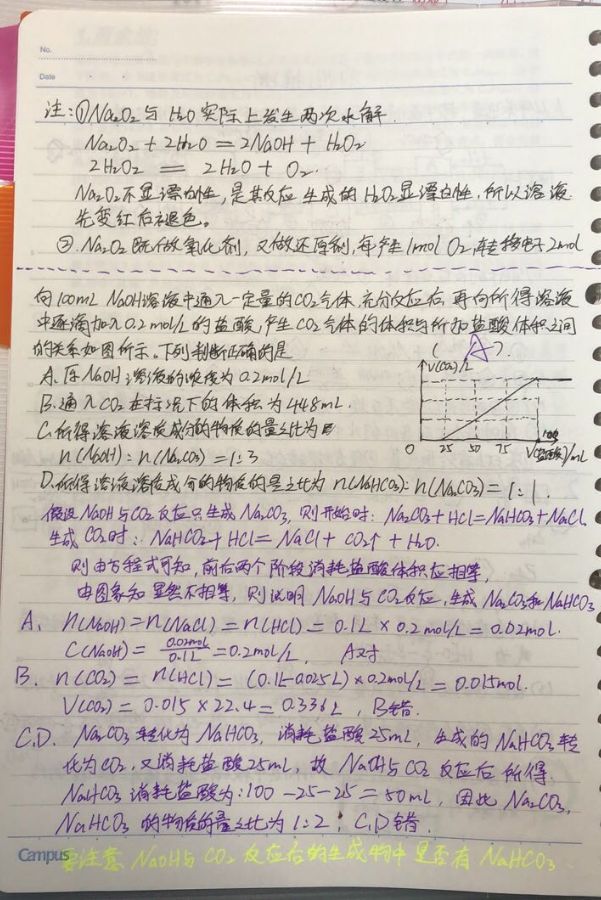 No.
Date
注:①Na₂O₂与H₂O实际上发生两次水解.
Na₂O₂+2H₂O=2NaOH+H₂O₂
2H₂O₂=2H₂O+O₂.
Na₂O₂不显漂白性,是其反应生成的H₂O₂显漂白性,所以溶液
先变红后褪色。
②.Na₂O₂既做氧化剂,又做还原剂,每产生1molO₂,转移电子2mol
向100mL NaOH溶液中通入一定量的CO₂气体,充分反应后,再向所得溶液
中逐滴加入0.2mol/L的盐酸,产生CO₂气体的体积与所加盐酸体积之间
的关系如图所示。下列判断正确的是(A).
A.原NaOH溶液的浓度为0.2mol/L
B.通入CO₂在标况下的体积为448mL.
C.所得溶液溶质成分的物质的量之比为
n(NaOH):n(Na₂CO₃)=1:3
V(CO₂)/L
0 25 50 75 100
V(盐酸)/mL
D.所得溶液溶质成分的物质的量之比为n(NaHCO₃):n(Na₂CO₃)=1:1.
假设NaOH与CO₂反应只生成Na₂CO₃,则开始时:Na₂CO₃+HCl=NaHCO₃+NaCl
生成CO₂时:NaHCO₃+HCl=NaCl+CO₂↑+H₂O.
则由方程式可知,前后两个阶段消耗盐酸体积应相等,
由图象知显然不相等,则说明NaOH与CO₂反应,生成Na₂CO₃和NaHCO₃
A. n(NaOH)=n(NaCl)=n(HCl)=0.1L×0.2mol/L=0.02mol.
C(NaOH)=0.02mol/0.1L=0.2mol/L, A对
B. n(CO₂)=n(HCl)=(0.1L-0.025L)×0.2mol/L=0.015mol.
V(CO₂)=0.015×22.4=0.336L,B错.
C,D. Na₂CO₃转化为NaHCO₃,消耗盐酸25mL,生成的NaHCO₃转
化为CO₂,又消耗盐酸25mL,故NaOH与CO₂反应后所得
NaHCO₃消耗盐酸为:100-25-25=50mL,因此Na₂CO₃,
NaHCO₃的物质的量之比为1:2;C,D错.
Campus
要注意NaOH与CO₂反应后的生成物中是否有NaHCO₃.